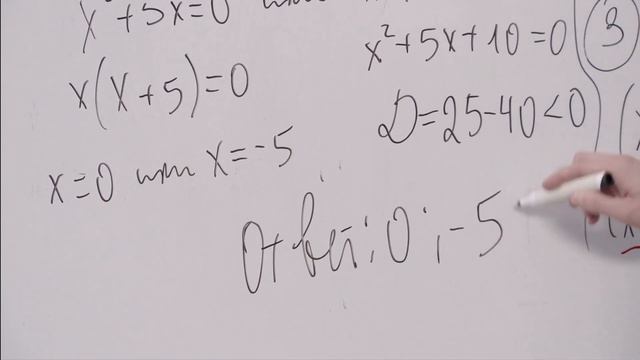 x²+5x=0 или
x(x+5)=0
x=0 или x=-5
x²+5x+10=0
D=25-40<0
Ответ: 0; -5
3